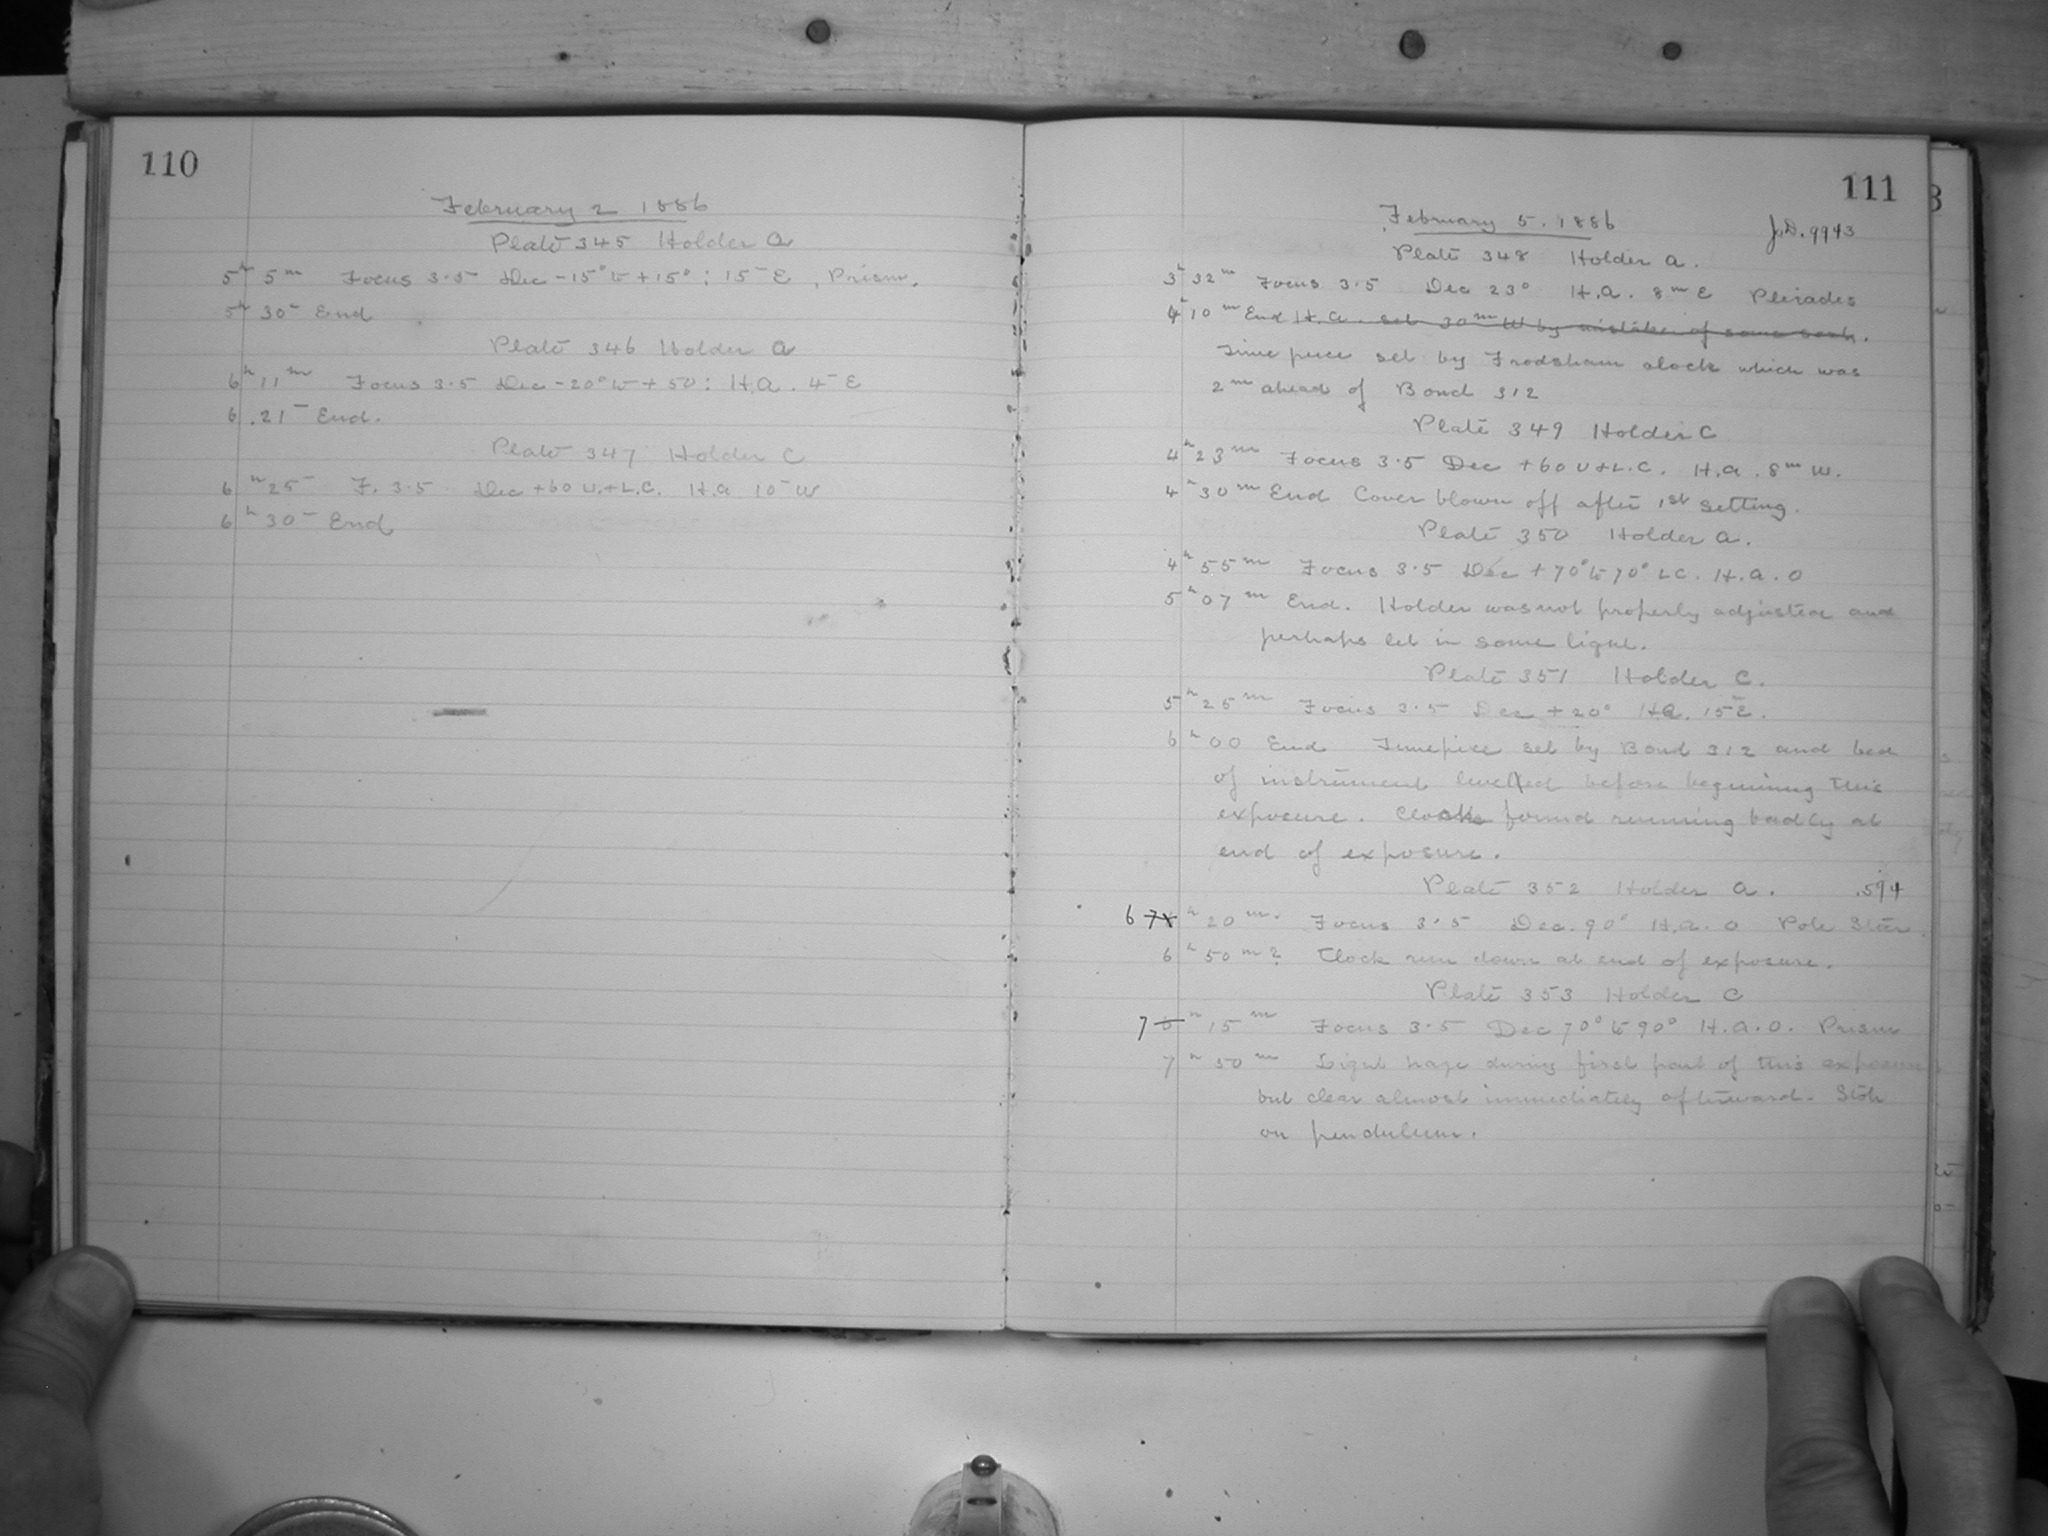 110
February 2 1886
Plate 345 Holder A
5h 5m Focus 3.5 Dec -15° to +15° : 15m E, Prism.
5h 30m End
Plate 346 Holder A
6h 11m Focus 3.5 Dec -20° to +50 : H.A. 4m E
6.21m End.
Plate 347 Holder C
6h 25m F. 3.5 Dec +60 U.+L.C. H.A. 10m W
6h 30m End
111
February 5. 1886
J.D. 9943
Plate 348 Holder A.
3h 32m Focus 3.5 Dec 23° H.A. 8m E Pleiades
4h 10m End H.A. set 30m W by mistake of some sort.
Time piece set by Frodsham clock which was
2m ahead of Bond 312
Plate 349 Holder C
4h 23m Focus 3.5 Dec +60 U+L.C. H.A. 8m W.
4h 30m End Cover blown off after 1st setting.
Plate 350 Holder A.
4h 55m Focus 3.5 Dec +70° to 70° LC. H.A. 0
5h 07m End. Holder was not properly adjusted and
perhaps let in some light.
Plate 351 Holder C.
5h 25m Focus 3.5 Dec +20° H.A. 15m E.
6h 00 End Timepiece set by Bond 312 and bed
of instrument levelled before beginning this
exposure. Clock found running badly at
end of exposure.
Plate 352 Holder A. .594
6 7 h 20m. Focus 3.5 Dec. 90° H.A. 0 Pole Star.
6h 50m? Clock run down at end of exposure.
Plate 353 Holder C
7 6 h 15m Focus 3.5 Dec 70° to 90° H.A.0. Prism
7h 50m Light haze during first part of this exposure
but clear almost immediately afterward.
on pendulum.